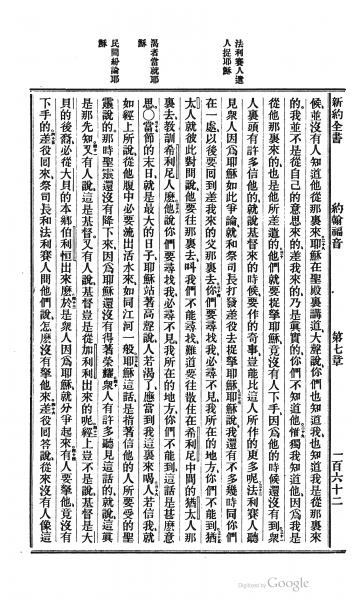 新約全書 約翰福音 第七章 一百六十二
候並沒有人知道他從那裏來耶穌在聖殿裏講道大聲說你們也知道我也知道我是從那裏來
的我並不是從自己的意思來的差我來的乃是眞實的你們不知道他惟獨我知道他因爲我是
從他那裏來的也是他所差遣的他們就要捉拏耶穌竟沒有人下手因他的時候還沒有到衆
人裏頭有許多信他的就說基督來的時候要作的奇事豈能比這人所作的更多呢法利賽人聽
見衆人因爲耶穌如此爭論就和祭司長打發差役去捉拏耶穌耶穌說我還有不多幾時同你們
在一處以後要回到差我來的父那裏去你們必尋找我必尋不見我所在的地方你們不能到猶
太人就彼此對問說他要往那裏去叫我們不能尋找難道要往散住在希利尼中間的猶太人那
裏去教訓希利尼人麽他說你們要尋找我必尋不見我所在的地方你們不能到這話是甚麽意
思○當節的末日就是最大的日子耶穌站著高聲說人若渴了應當到我這裏來喝人若信我就
如經上所說從他腹中必要流出活水來如同江河一般耶穌這話是指著信他的人所要受的聖
靈說的那時聖靈還沒有降下來因爲耶穌還沒有得著榮耀衆人有許多聽見這話的就說這眞
是那先知又有人說這是基督又有人說基督豈是從加利利出來的呢經上豈不是說基督是大
貝的後裔必從大貝的本鄉伯利恒出來麽於是衆人因爲耶穌就分爭起來有人要拏他竟沒有
下手的差役回來祭司長和法利賽人問他們說怎麽沒有拏他來差役回答說從來沒有人像這
法利賽人遣
人捉耶穌
渴者當就耶
穌
民間紛論耶
穌
Digitized by Google